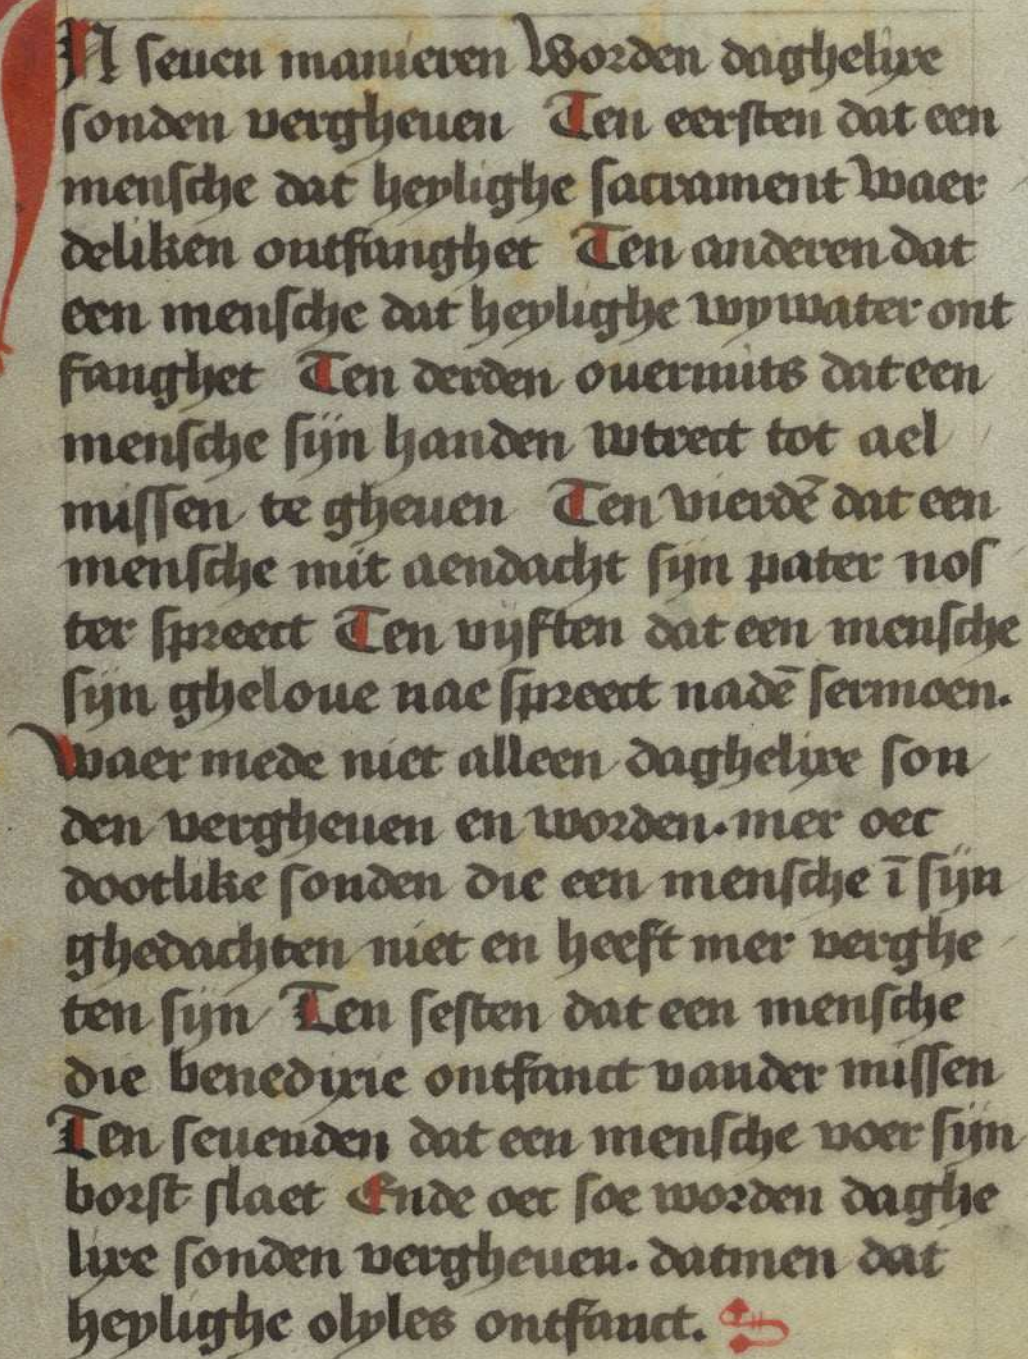 IN seuen manieren Worden daghelixe
sonden vergheuen Ten eersten dat een
mensche dat heylighe sacrament waer
deliken ontfanghet Ten anderen dat
een mensche dat heylighe wywater ont
fanghet Ten derden ouermits dat een
mensche sijn handen wtrect tot ael
missen te gheuen Ten vierdē dat een
mensche mit aendacht sijn pater nos
ter spreect Ten vijften dat een mensche
sijn gheloue nae spreect nadē sermoen.
waer mede niet alleen daghelixe son
den vergheuen en worden. mer oec
dootlike sonden die een mensche ī sijn
ghedachten niet en heeft mer verghe
ten sijn Ten sesten dat een mensche
die benedixie ontfanct vander missen
Ten seuenden dat een mensche voer sijn
borst slaet Ende oec soe worden daghe
lixe sonden vergheuen. datmen dat
heylighe olyles ontfanct.